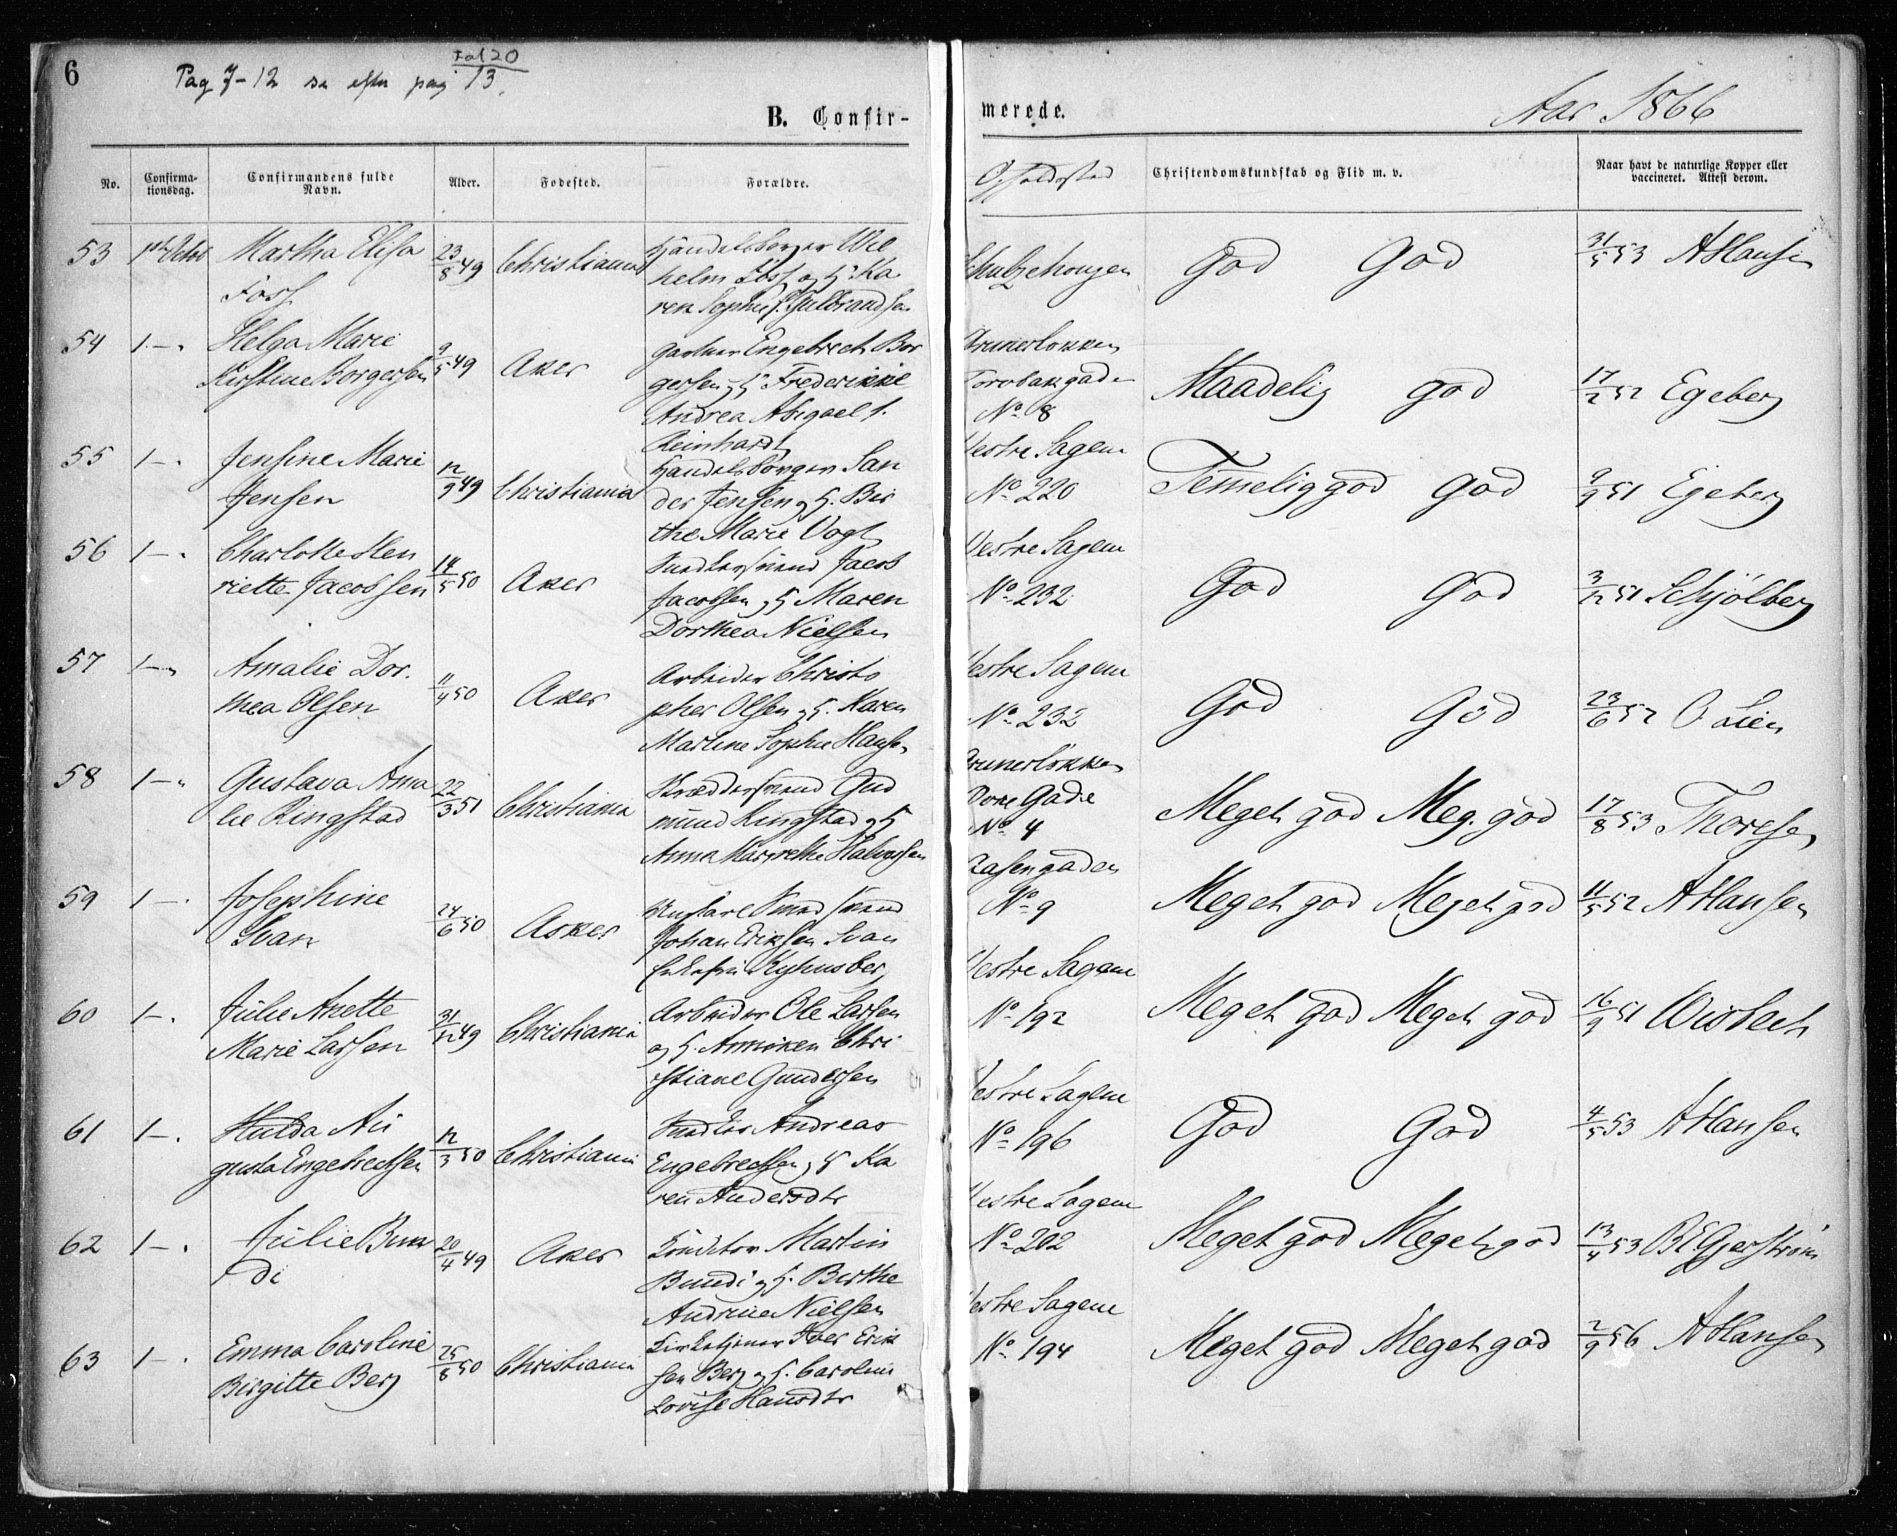 6
Pag 7-12 se efter pag 13.
Fol 20
B. Confir-
merede.
Aar 1866
No.
Confirma-
tionsdag.
Confirmandens fulde
Navn.
Alder.
Fødested.
Forældre.
Opholdssted
Christendomskundskab og Flid m. v.
Naar havt de naturlige Kopper eller
vaccineret. Attest derom.
53 Martha Elisa
Foss
23/8 49 Christiania
Handelsborger Wil
helm Foss og H. Ka
ren Sophie f. Gulbrandsen
Schultzehougen
God God
31/5 53 AHansen
54 1 - "
Helga Marie
Kirstine Borgersen
9/5 49 Aker
Gartner Engebrech Bor
gersen og H. Frederikke
Andrea Abigael f.
Reinhardt
Grunerløkken
Torvbakgade
No 8
Maadelig god
17/2 52 Egeberg
55 1 - "
Jensine Marie
Jensen
12/9 49 Christiania
Handelsborger San
der Jensen og H. Bir
the Marie Vogt
Vestre Sagene
No 220
Temelig god God
9/9 51 Egeberg
56 1 - "
Charlotte Hen
riette Jacobsen
14/5 50 Aker
Snedkersvend Jacob
Jacobsen og H Maren
Dorthea Nielsen
Vestre Sagene
No 232
God God
3/12 51 Schjølberg
57 1 - "
Amalie Dor
thea Olsen
11/4 50 Aker
Arbeider Christo
pher Olsen og H. Karen
Martine Sophie Hansen
Vestre Sagene
No 232
God God
23/6 52 O Lien
58 1 - "
Gustava Ama
lie Ringstad
22/3 51 Christiania
Skræddersvend Gud
mund Ringstad og H
Anna Margrethe Halvorsen
Grunerløkken
Gade
No 4
Meget god Meg. god
17/8 53 Thoresen
59 1 - "
Josephine
Svan
24/6 50 Asker
Snedsvend
Johan Eriksen Svan
Kyhnsberg
No 9
Meget god Meget god
11/5 52 AHansen
60 1 - "
Julie Anette
Marie Larsen
31/12 49 Christiania
Arbeider Ole Larsen
og H. Anniken Chri
stiane Gundersen
Vestre Sagene
No 192
Meget god Meget god
16/9 51 Wisbech
61 1 - "
Hulda Au
gusta Engebrechtsen
12/3 50 Christiania
Snedker Andreas
Engebrechtsen og H Ka
ren Andersdtr
Vestre Sagene
No 196
God God
4/5 53 AHansen
62 1 - "
Julie Bun
di
20/4 49 Aker
Konditor Martin
Bundi og H. Birthe
Andrine Nielsen
Vestre Sagene
No 202
Meget god Meget god
13/4 53
63 1 - "
Emma Caroline
Birgitte Berg
25/6 50 Christiania
Kirketjener Iver Erik
sen Berg og H. Caroline
Lovise Hansdtr
Vestre Sagene
No 194
Meget god Meget god
2/9 56 AHansen